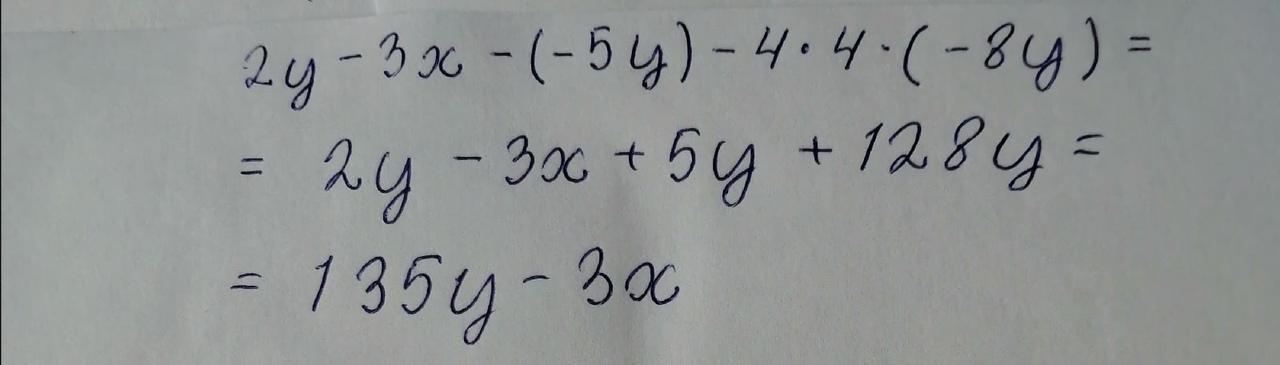 2y - 3x - (-5y) - 4 · 4 · (-8y) =
= 2y - 3x + 5y + 128y =
= 135y - 3x